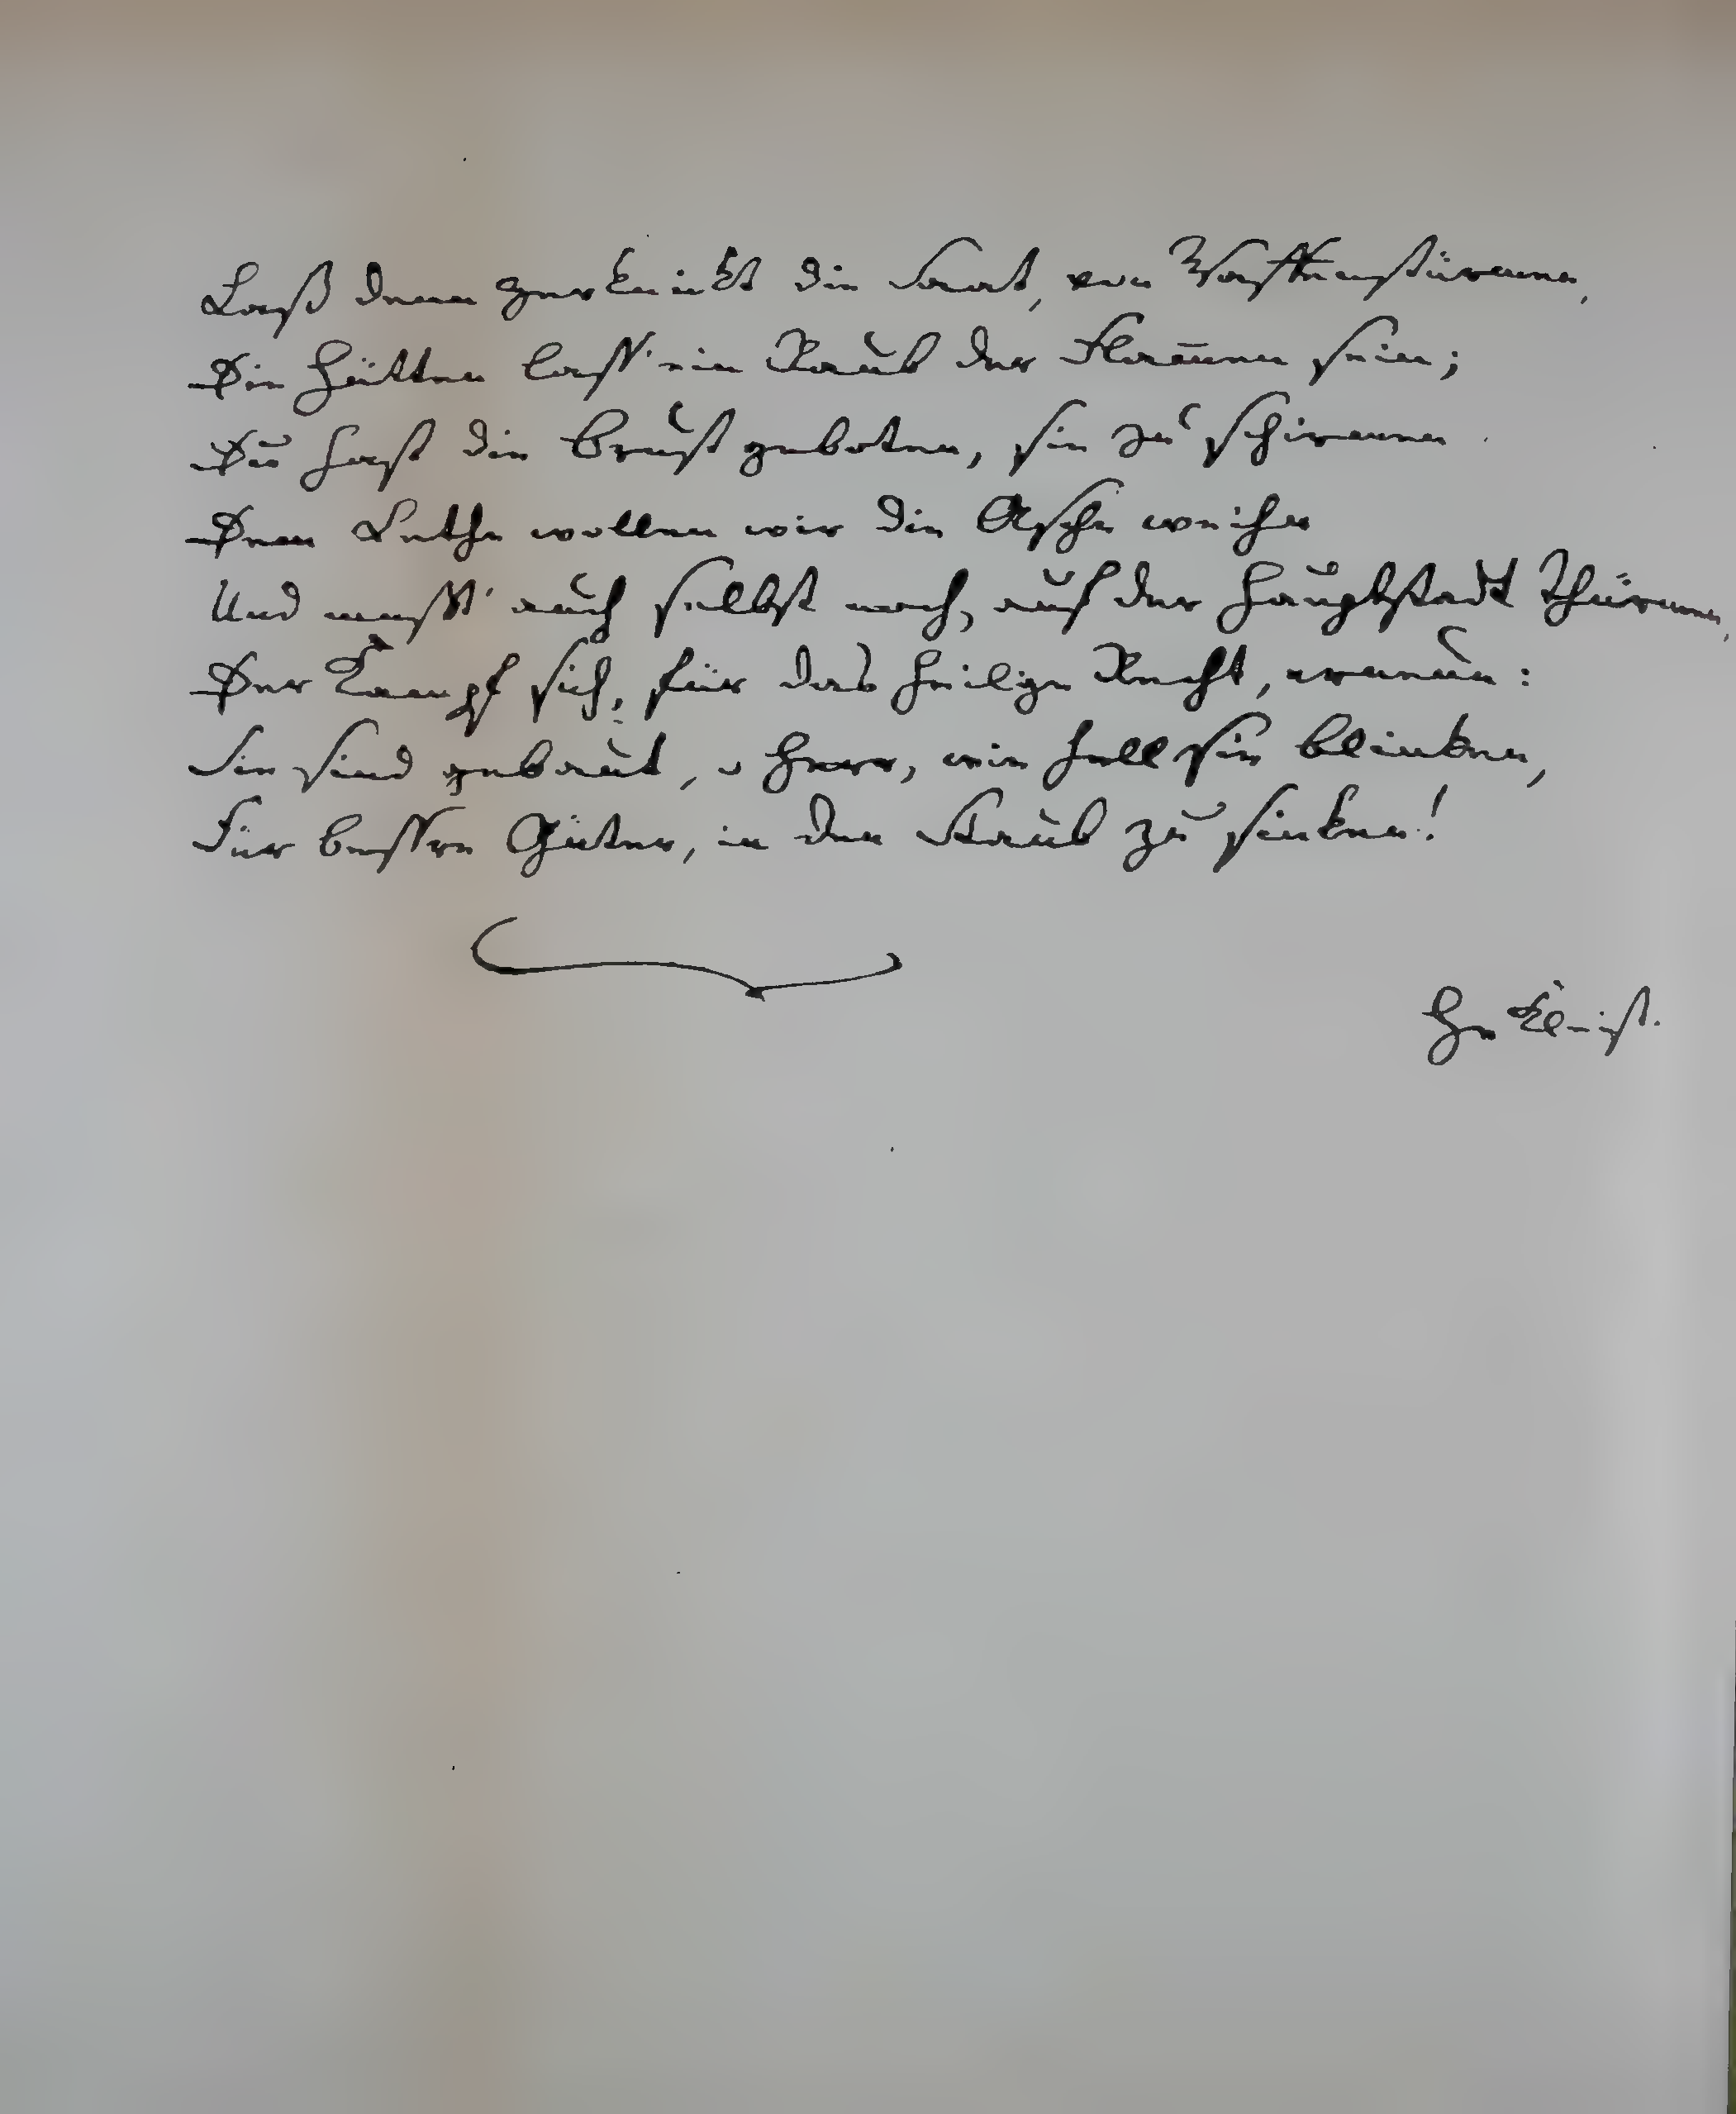 Laß denn zerknickt die Saat, von Waffenstürmen,
Die Hütten laß ein Raub der Flam̄en sein;
Du hast die Brust geboten, sie zu schirmen
Dem Lethe wollen wir die Asche weihen
Und müßt' auch selbst noch, auf der Hauptstadt Thürmen,
Der Kampf sich, für das heilige Recht, erneun:
Sie sind gebaut, o Herr, wie hell sie blinken,
Für beßre Güter, in den Staub zu sinken!
Kleist.